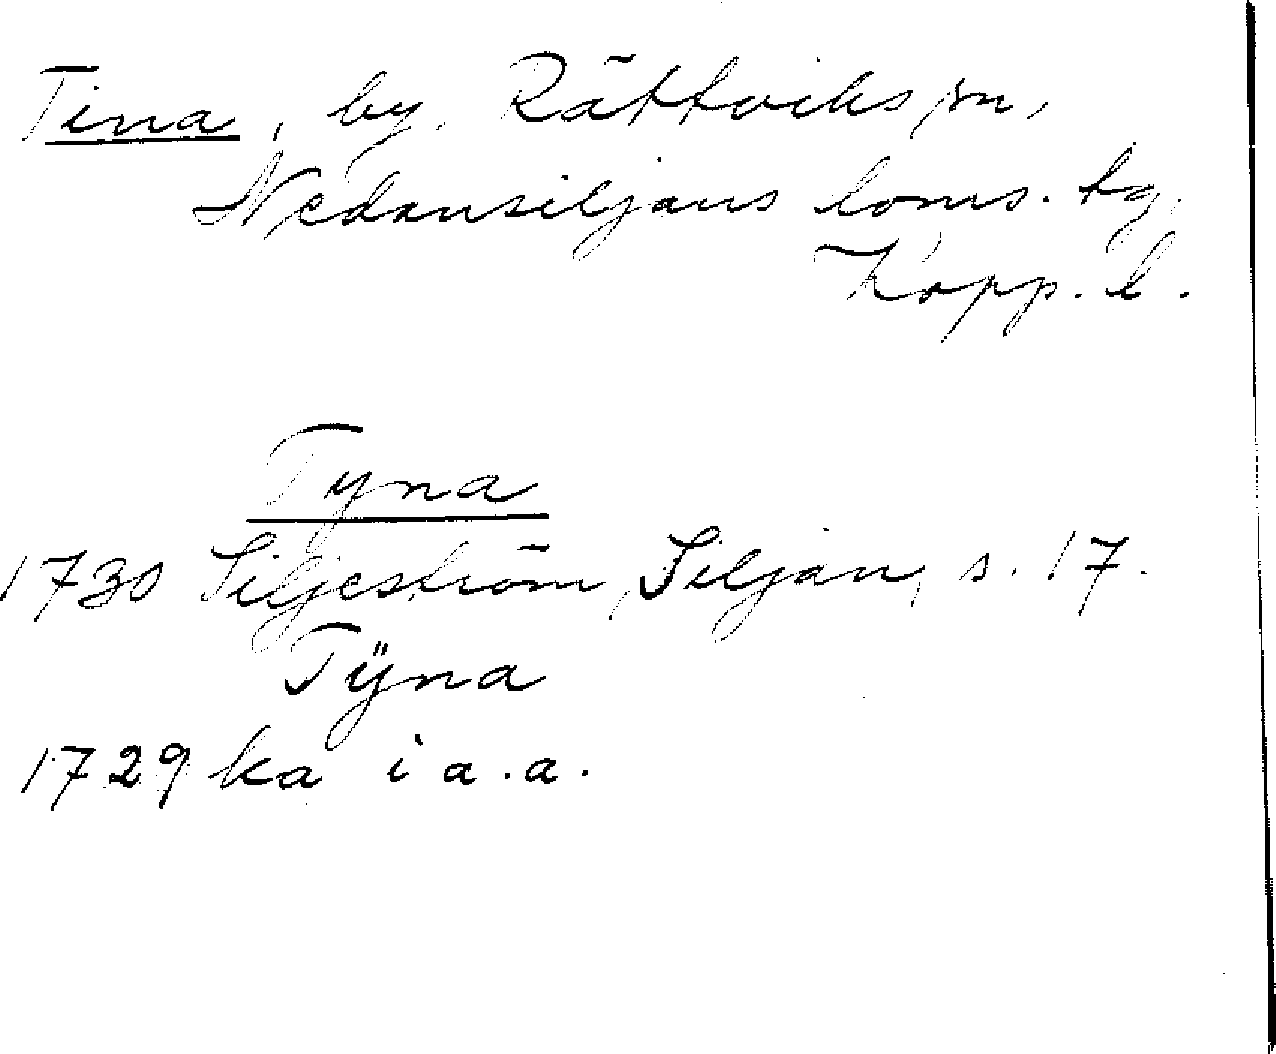 Tina, by, Rättviks sn,
Nedansiljans doms. tg,
Kopp. l.
Tyna
1730 Siljeström, Siljan, s. 17.
Tÿna
1729 ka i a.a.